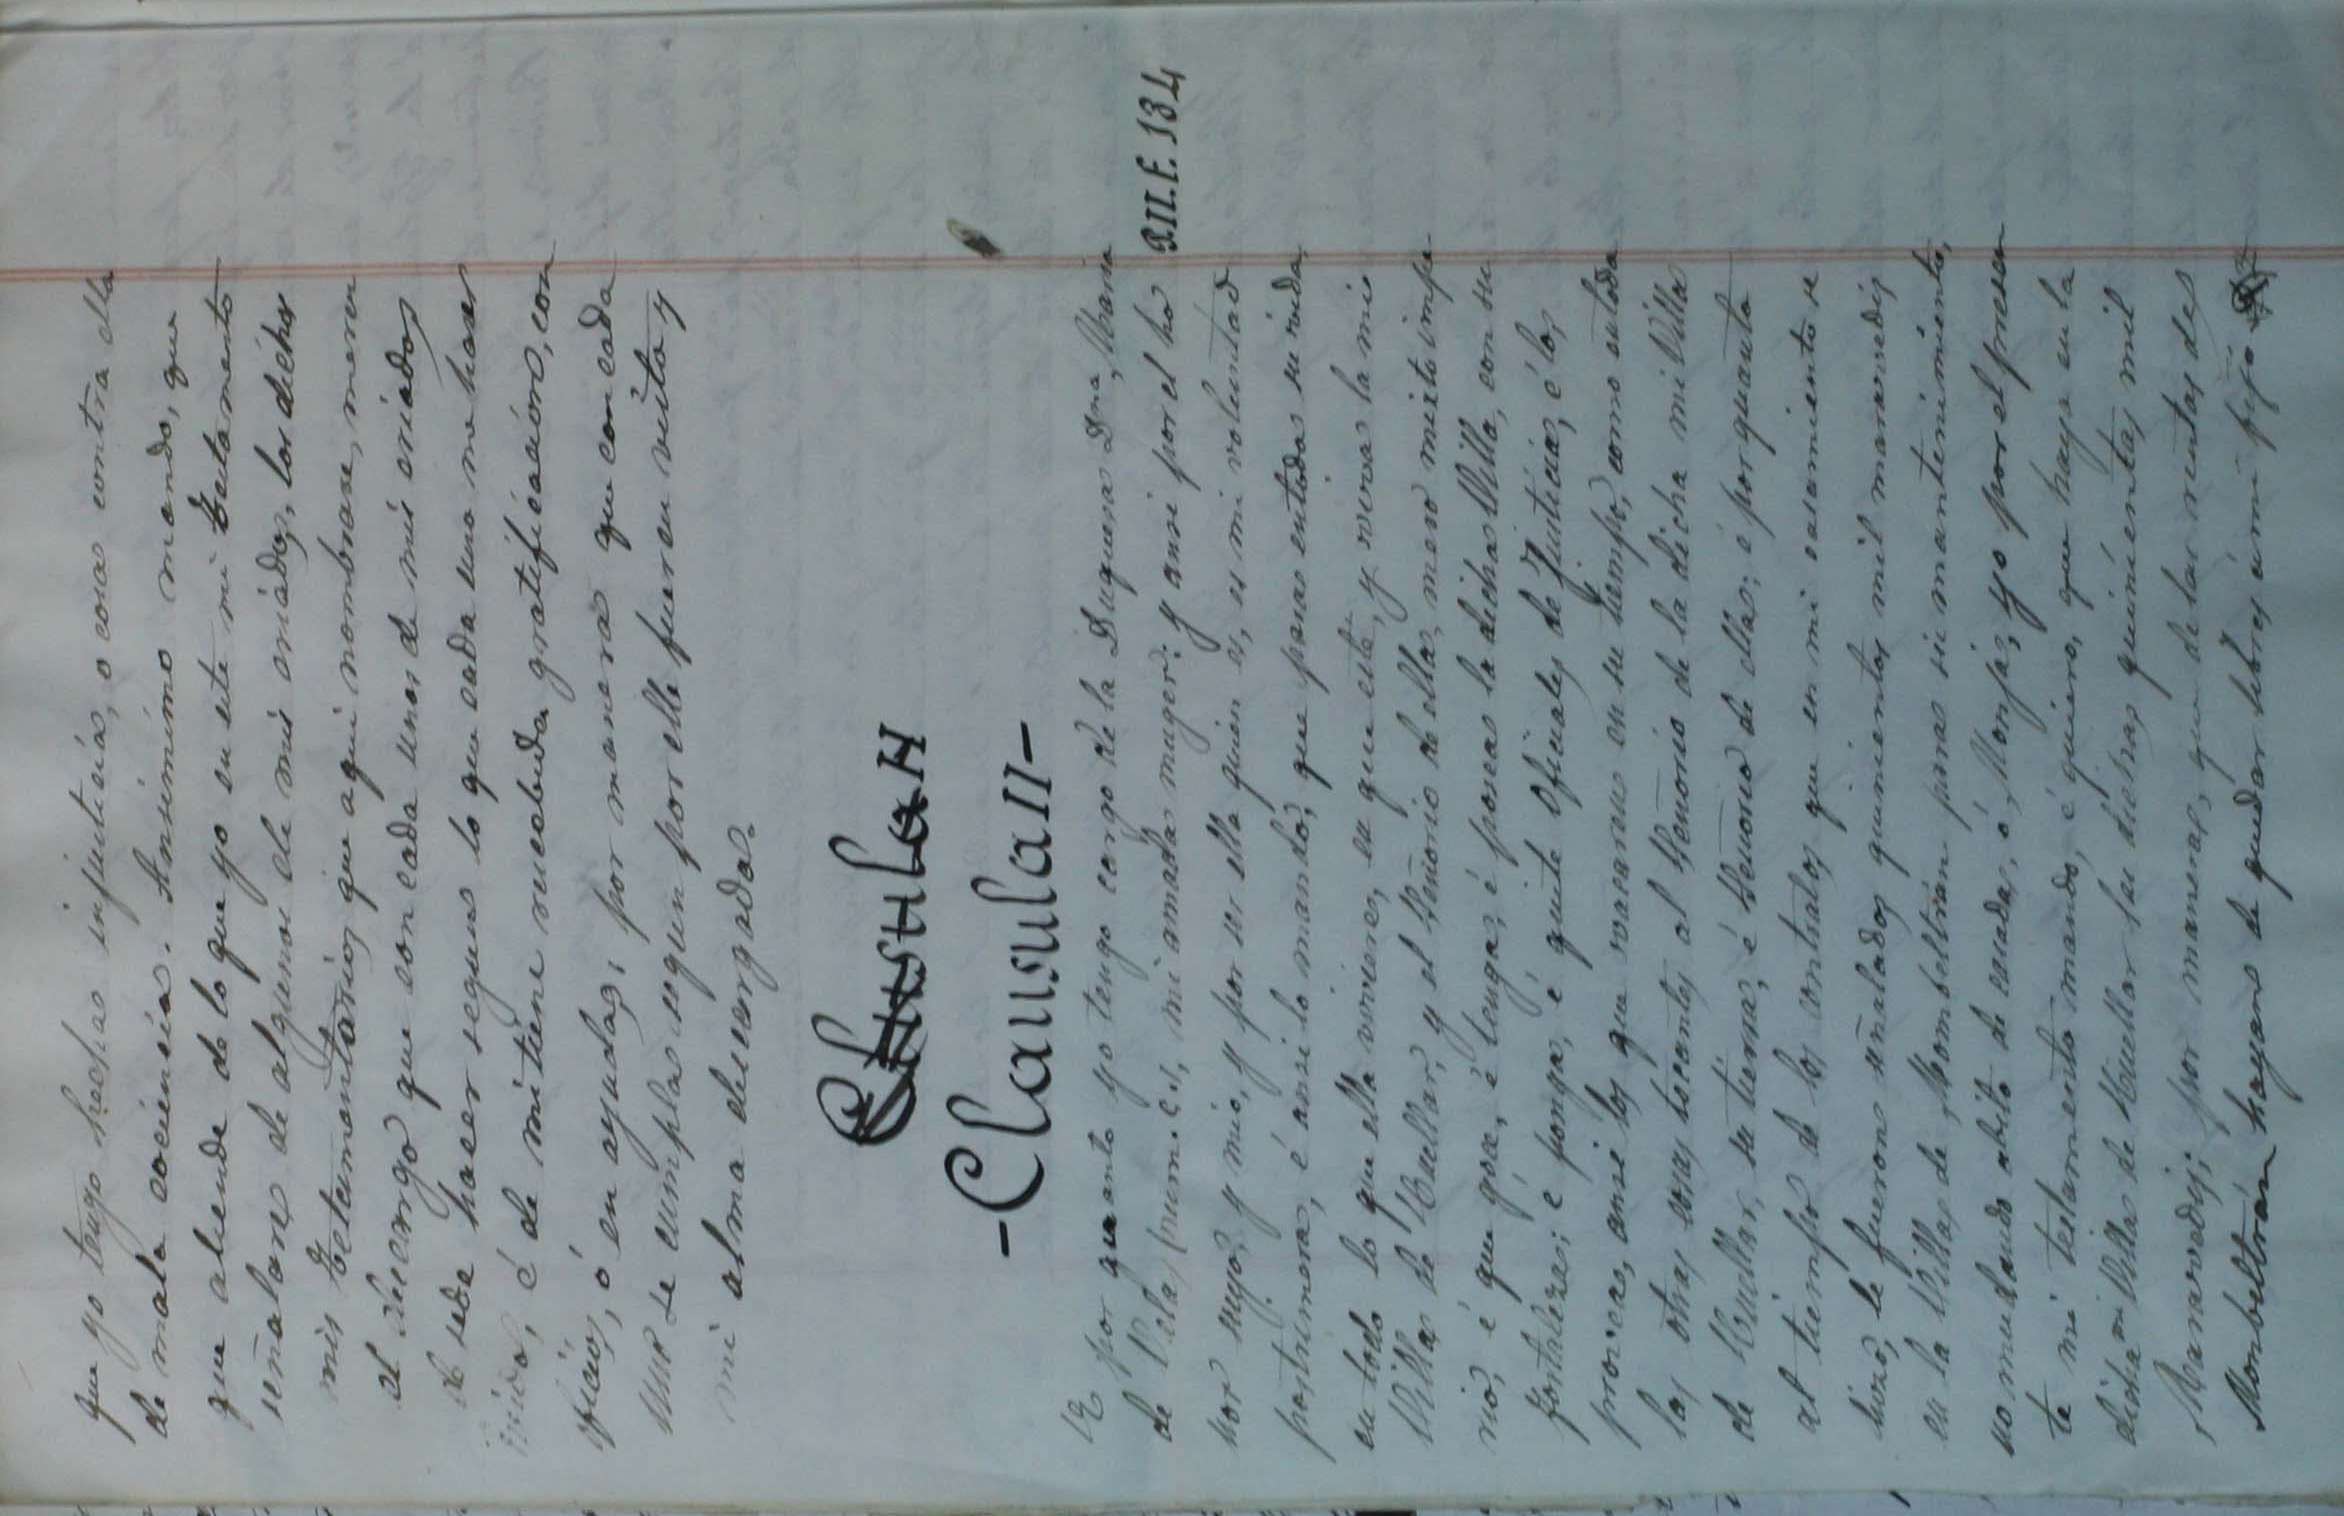 que yo tengo hechas injusticias, o cosas contra ella
de mala cociencia. Ansimimo mando, que
que aliende de lo que yo en este mi Testamento
señalare de algunos de mis criados, los dichos
mis Testamentarios que aqui nombrare, miren
el descargo que con cada unos de mis criados
se seda hacer segun lo que cada uno me hover
servido, é de mi tiene rrecabida gratificacion, con
oficios, ó en ayudas; por manera que con cada
uno se cumpla segun por elle fuere visto y
mi alma descargada.
Clausula II
-Clausula II-
E por quanto yo tengo cargo de la Duquesa Dna, Maria
de Vela, mi amada muger: y ansi por el ho XII.F.134
nor suyo, y mio, y por ser ella quien es, es mi voluntad
postrimera, é ansi lo mando, que para entodas su vida,
en todo lo que ella viviere, en que este, y viva la mi
Villa de Cuellar, y el Señorio de ella, mero mixto impe
rio, é que goze, é tenga, é posea la dicha Villa, con su
fortaleza; é ponga, é quite Oficiales de Justicia, é los
provea, ansi los que vacaren en su tiempo, como entoda
las otras cosas tocantes al Señorio de la dicha mi Villa
de Cuellar, su tierra, é Señorio de ella; é por quanto
al tiempo de los contratos que en mi casamiento se
hizo, le fueron señalados quinientos mil maravedis
en la Villa de Mombeltrán para su mantenimiento,
no mudando abito de casada, ó, Monja, yo por el presen
te mi testamento mando, é quiero, que haya en la
dicha mi Villa de Cuellar las dichas quinientas mil
Maravedis; por manera, que de las rentas des
Monbeltrán hayan de quedar libres á mi fijo